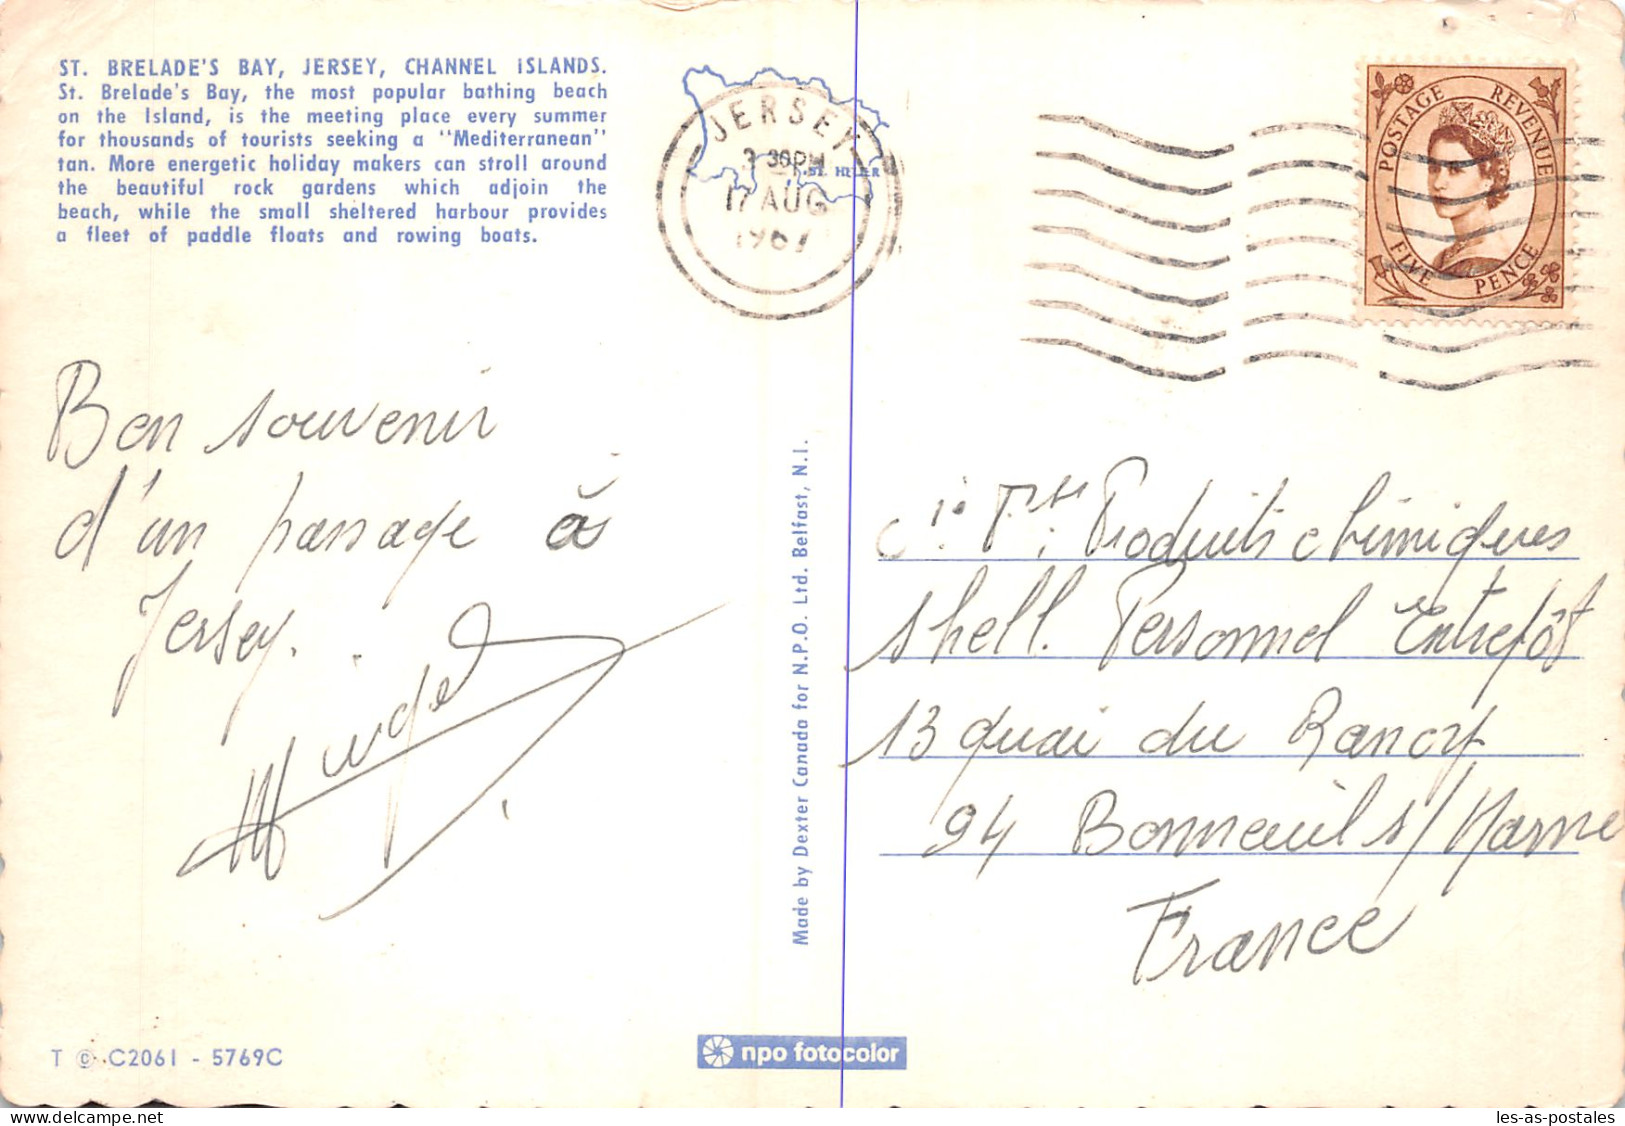 ST. BRELADE'S BAY, JERSEY, CHANNEL ISLANDS.
St. Brelade's Bay, the most popular bathing beach
on the Island, is the meeting place every summer
for thousands of tourists seeking a "Mediterranean"
tan. More energetic holiday makers can stroll around
the beautiful rock gardens which adjoin the
beach, while the small sheltered harbour provides
a fleet of paddle floats and rowing boats.
JERSEY
3 30PM
17 AUG
1967
ST. HELIER
POSTAGE REVENUE
FIVE PENCE
Bon souvenir
d'un passage à
Jersey.
Made by Dexter Canada for N.P.O. Ltd. Belfast, N.I.
Cie Produits chimiques
Shell. Personnel Entrepôt
13 quai du Rancy
94 Bonneuil s/Marne
France
T © C2061 - 5769C
npo fotocolor
delcampe.net
les-as-postales